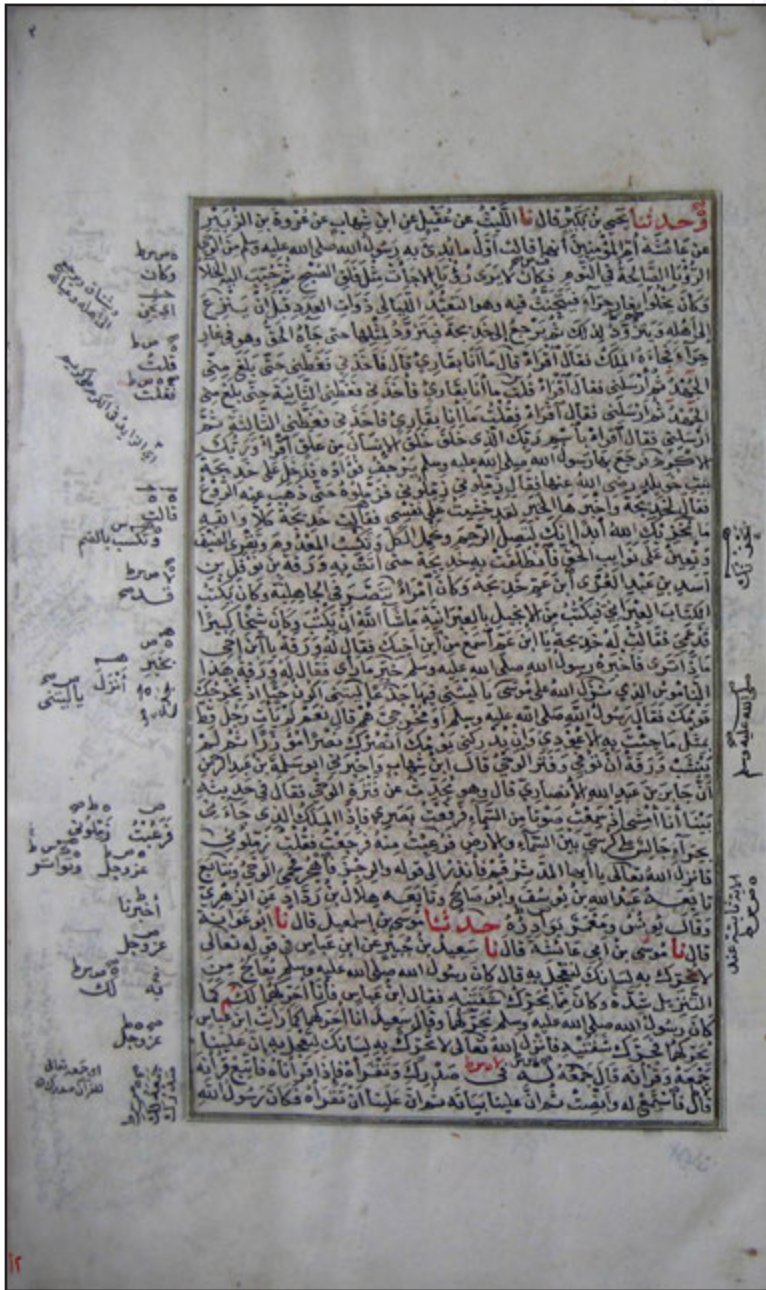 وحدثنا يحيى بن بكير قال نا الليث عن عقيل عن ابن شهاب عن عروة بن الزبير
عن عائشة أم المؤمنين أنها قالت أول ما بدئ به رسول الله صلى الله عليه وسلم من الوحي
الرؤيا الصالحة في النوم فكان لا يرى رؤيا إلا جاءت مثل فلق الصبح ثم حبب إليه الخلا
وكان يخلوا بغار حراء فيتحنث فيه وهو التعبد الليالي ذوات العدد قبل أن ينزع
إلى أهله ويتزود لذلك ثم يرجع إلى خديجة فيتزود لمثلها حتى جاءه الحق وهو في غار
حراء فجاءه الملك فقال اقرأ قال ما أنا بقارئ قال فأخذني فغطني حتى بلغ مني
الجهد ثم أرسلني فقال اقرأ قلت ما أنا بقارئ فأخذني فغطني الثانية حتى بلغ مني
الجهد ثم أرسلني فقال اقرأ فقلت ما أنا بقارئ فأخذني فغطني الثالثة ثم
أرسلني فقال اقرأ باسم ربك الذي خلق خلق الإنسان من علق اقرأ وربك
الأكرم فرجع بها رسول الله صلى الله عليه وسلم يرجف فؤاده فدخل على خديجة
بنت خويلد رضى الله عنها فقال زملوني زملوني فزملوه حتى ذهب عنه الروع
فقال لخديجة وأخبرها الخبر لقد خشيت على نفسي فقالت خديجة كلا والله
ما يخزيك الله أبدا إنك لتصل الرحم وتحمل الكل وتكسب المعدوم وتقري الضيف
وتعين على نوايب الحق فانطلقت به خديجة حتى أتت به ورقة بن نوفل بن
أسد بن عبد العزى ابن عم خديجة وكان امرأ تنصر في الجاهلية وكان يكتب
الكتاب العبراني فيكتب من الإنجيل بالعبرانية ما شاء الله أن يكتب وكان شيخا كبيرا
قد عمي فقالت له خديجة يا ابن عم اسمع من ابن أخيك فقال له ورقة يا ابن أخي
ماذا ترى فأخبره رسول الله صلى الله عليه وسلم خبر ما رأى فقال له ورقة هذا
الناموس الذي نزل الله على موسى يا ليتني فيها جذعا ليتني أكون حيا إذ يخرجك
قومك فقال رسول الله صلى الله عليه وسلم أو مخرجي هم قال نعم لم يأت رجل قط
بمثل ما جئت به إلا عودي وإن يدركني يومك أنصرك نصرا مؤزرا ثم لم
ينشب ورقة أن توفي وفتر الوحي قال ابن شهاب وأخبرني أبو سلمة بن عبد الرحمن
أن جابر بن عبد الله الأنصاري قال وهو يحدث عن فترة الوحي فقال في حديثه
بينا أنا أمشي إذ سمعت صوتا من السماء فرفعت بصري فإذا الملك الذي جاءني
بحراء جالس على كرسي بين السماء والأرض فرعبت منه فرجعت فقلت زملوني
فأنزل الله تعالى يا أيها المدثر قم فأنذر إلى قوله والرجز فاهجر فحمي الوحي وتتابع
تابعه عبد الله بن يوسف وأبو صالح وتابعه هلال بن رداد عن الزهري
وقال يونس ومعمر بوادره حدثنا موسى بن إسمعيل قال نا أبو عوانة
قال نا موسى بن أبي عائشة قال نا سعيد بن جبير عن ابن عباس في قوله تعالى
لا تحرك به لسانك لتعجل به قال كان رسول الله صلى الله عليه وسلم يعالج من
التنزيل شدة وكان مما يحرك شفتيه فقال ابن عباس فأنا أحركهما لكم كما
كان رسول الله صلى الله عليه وسلم يحركهما وقال سعيد أنا أحركهما كما رأيت ابن عباس
يحركهما فحرك شفتيه فأنزل الله تعالى لا تحرك به لسانك لتعجل به إن علينا
جمعه وقرآنه قال جمعه له في صدرك وتقرأه فإذا قرأناه فاتبع قرآنه
قال فاستمع له وأنصت ثم إن علينا بيانه ثم إن علينا أن تقرأه فكان رسول الله
وكان
قلت
فقلت
قالت
وتكسب بالضم
بخبر
أنزل
يا ليتني
صلى الله عليه وسلم
فرعبت
زملوني
عز وجل
وتواتر
أخبرنا
عز وجل
لك
عز وجل
جمعه لك
صدرك
٢